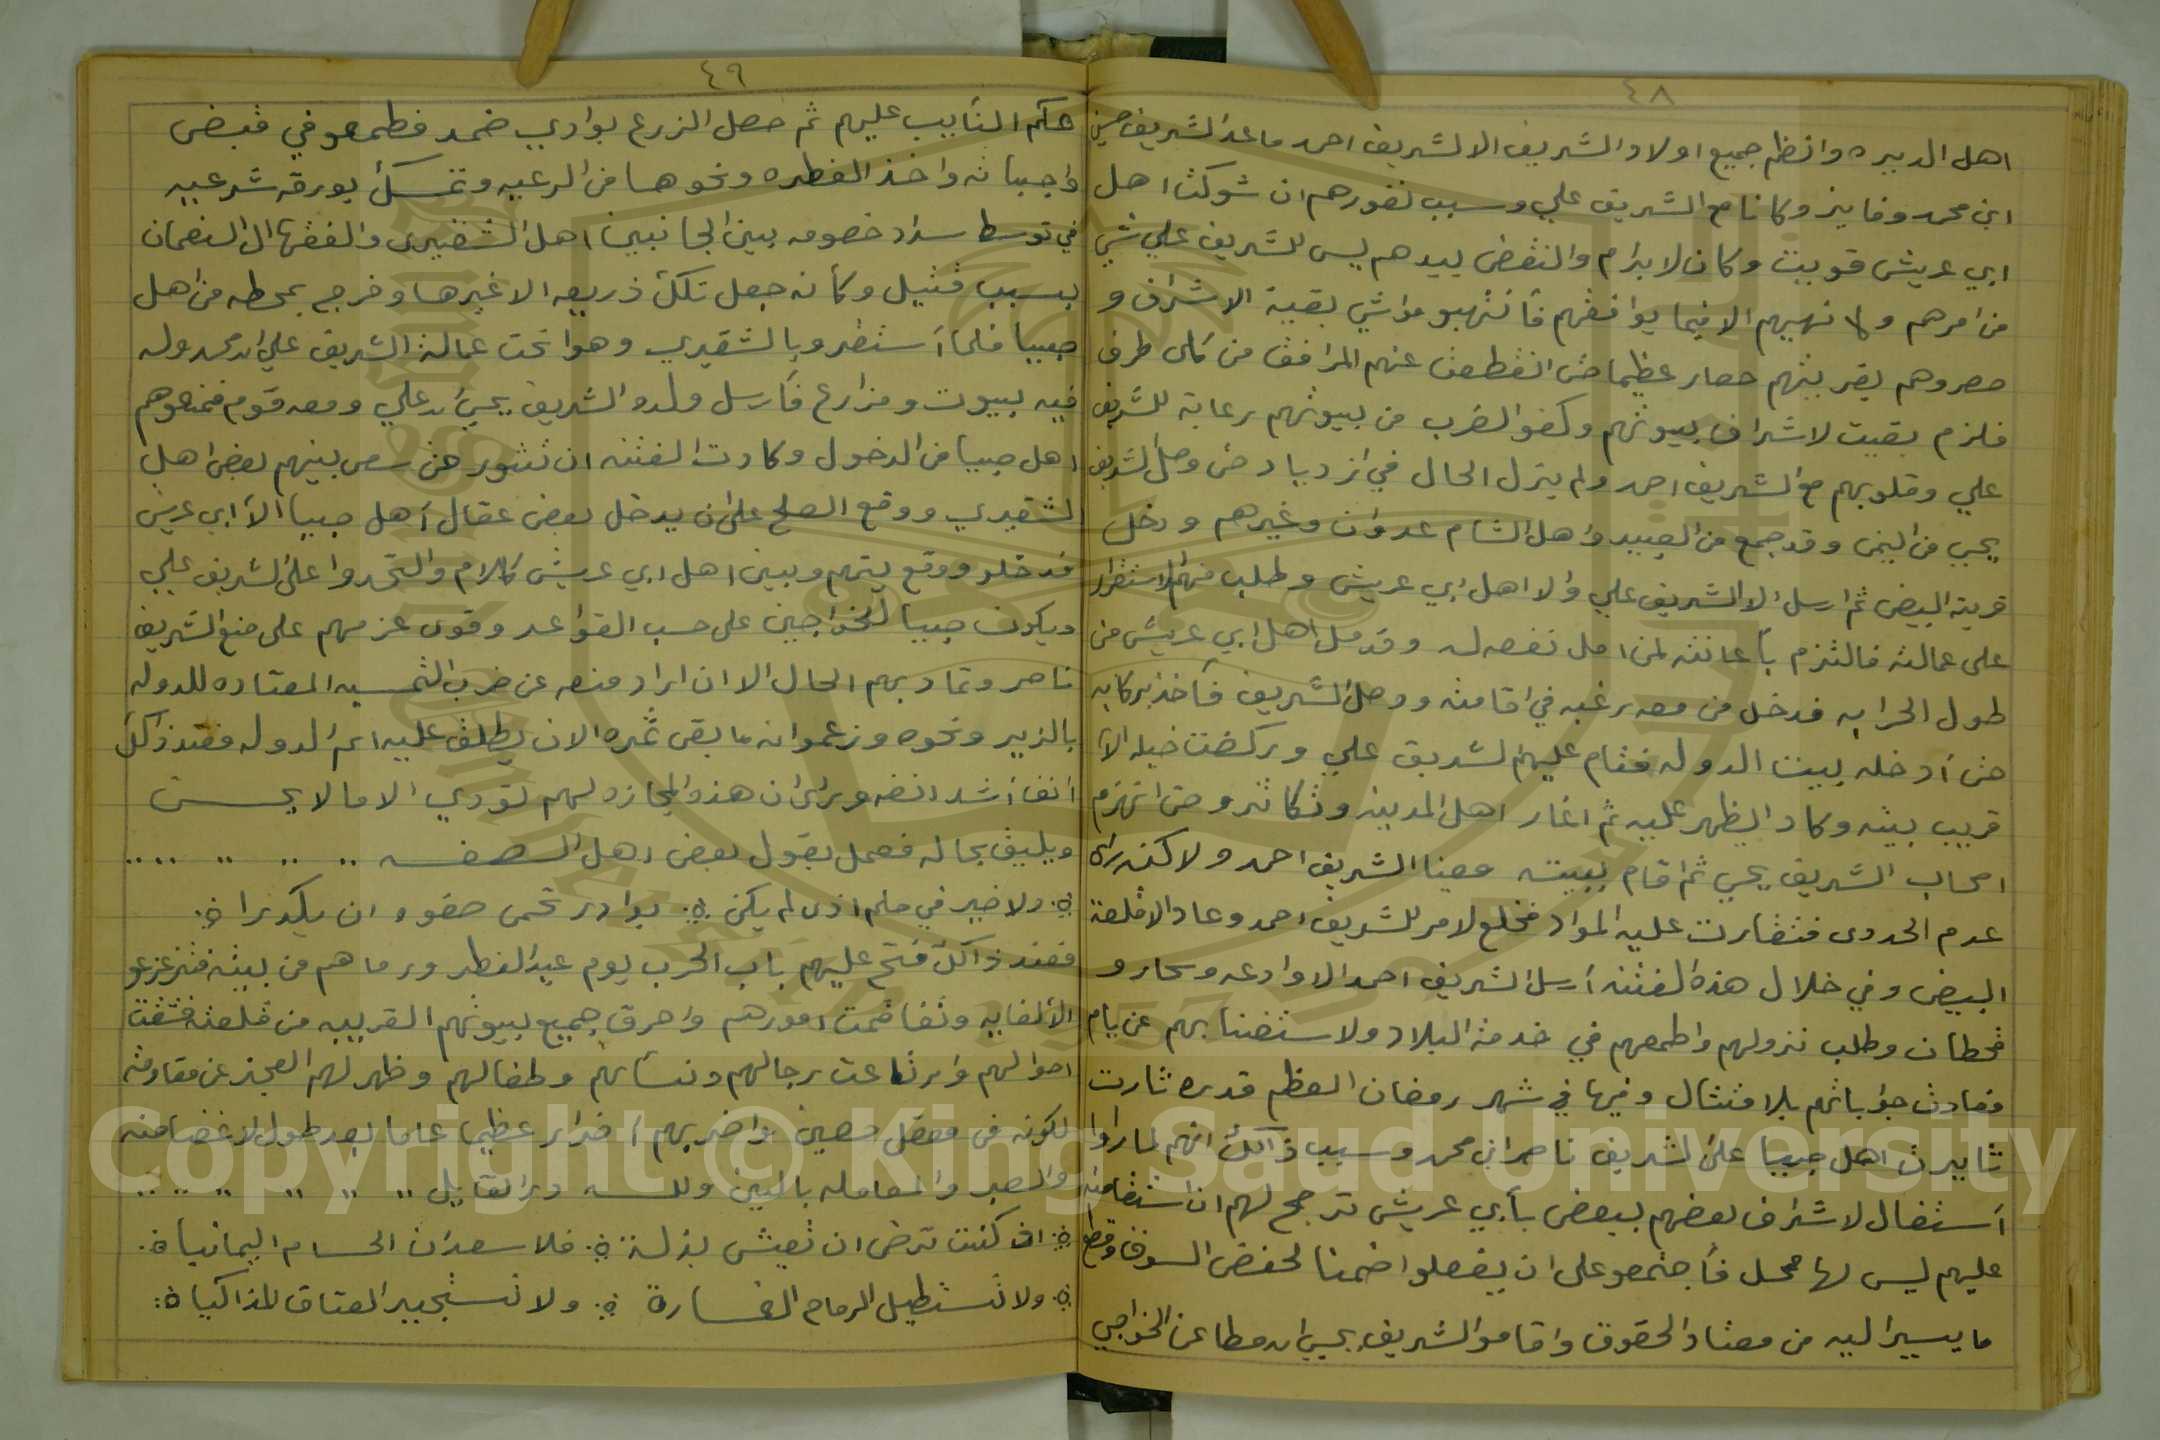 ٤٨
اهل الديره وانظم جميع اولاد الشريف الا الشريف احمد ماعد الشريف حسين
ابن محمد وفايز وكانا مع الشريف علي وسبب نفورهم ان شوكت اهل
ابي عريش قوييت وكان لابرام والنقض بيدهم ليس للشريف علي شي
من امرهم ولا نهيهم الا فيما يوافقهم فأنتهبو مواشي بقية الاشراف و
حصروهم بقريتهم حصار عظيما حتى انقطعت عنهم المرافق من كل طرف
فلزم بقيت لاشراف بيوتهم وكفو الضرب من بيوتهم رعاية للشريف
علي وقلوبهم مع الشريف احمد ولم يزل الحال في ازدياد حتى وصل الشريف
يحيى من اليمن وقد جمع من العبيد واهل الشام عدوان وغيرهم ودخل
قرية البيض ثم ارسل الا الشريف علي والا اهل ابي عريش وطلب منهم الاستقرار
على عمالته فالتزم بأعانته لمن امل نفعه له وقد مل اهل ابي عريش من
طول الحرابه فدخل من معه رغبه في اقامته ووصل الشريف فأخذ بركابه
حتى أدخله بيت الدوله فقام عليهم الشريف علي وركضت خيله الآ
قريب بيته وكاد ايظهر عليه ثم اغار اهل المدينه وتكاثرو حتى انهزم
اصحاب الشريف يحيي ثم اقام ببيته معينا الشريف احمد ولاكنه راى
عدم الجدوى فتقارت عليه المواد فخلع لامر للشريف احمد وعاد الا قلعة
البيض وفي خلال هذه الفتنه أرسل الشريف احمد الا وادعه وسحار و
قحطان وطلب نزولهم واطمعهم في خدمة البلاد ولاستغنا بهم عن يام
فعادت جواباتهم بلامتثال وفيها في شهر رمضان العظم قدره ثارت
ثايرت اهل صبيا على الشريف ناصر ابن محمد وسبب ذالك انهم لما راوا
أستغال لاشراف بعضهم ببعض بأبي عريش ترجح لهم ان استقامته
عليهم ليس لها محل فأجتمعو على ان يفعلوا ضمنا لحفض السوق وقطع
ما يسير اليه من معتاد الحقوق واقامو الشريف يحيي ابن مطاعن الخواجي
٤٩
حكم النأيب عليهم ثم حصل الزرع بوادي ضمد فطمعو في قبض
واجباته واخذ الفطره ونحوها من الرعيه وتمسك بورقه شرعيه
في توسط سداد خصومه بين الجانبين اهل الشقيرى والفقها ال النعمان
بسبب قتيل وكأنه جعل تلك ذريعه الا غيرها وخرج بمحطه من اهل
صبيا فلما أستقرو بالشقيري وهوا تحت عمالة الشريف علي ابن محمد وله
فيه بيوت ومزارع فأرسل ولده الشريف يحيى ابن علي ومعه قوم فمنعوهم
اهل صبيا من الدخول وكادت الفتنه ان تثور حتى سعى بينهم بعض اهل
الشقيري ووقع الصلح على ان يدخل بعض عقال أهل صبيا الآ ابي عريش
فدخلو ووقع بينهم وبين اهل ابي عريش كلام والتحدوا على الشريف علي
ويكون صبيا للخواجين على حسب القواعد وقوى عزمهم على منع الشريف
ناصر وتمادبهم الحال الا ان اراد منعه عن ضرب الثمسيه المعتاده للدوله
بالزير ونحوه وزعموا انه ما بقى ثمره الان يطلق عليه اسم الدوله فعند ذالك
انف أشد انفه وراى ان هذه المجازه لهم تؤدي الا ما لا يحسن
ويليق بحاله فعمل بقول بعض اهل الصفه
ولا خير في حلم اذى لم يكن ۞ بوادر تحمى صفوه ان يكدرا
فعند ذالك فتح عليهم باب الحرب يوم عيد الفطر ورماهم من بيته فتزعزعو
الألفايه وتفاقمت امورهم واحرق جميع بيوتهم القريبه من قلعته فتفتت
احوالهم وارتاعت رجالهم ونسأئهم وطفالهم وظهر لهم العجز عن مقاومته
لكونه في معقل حصين واضربهم أضرار عظيما عاما بعد طول لاغضا منه
والصبر والمعامله بالين ولله در القايل
ان كنت ترضى ان تعيش بذلة ۞ فلا سعدان الحسام اليمانيا
ولا تستطيل الرماح الغارة ۞ ولا تستجير العتاق المذاكيا
Copyright © King Saud University